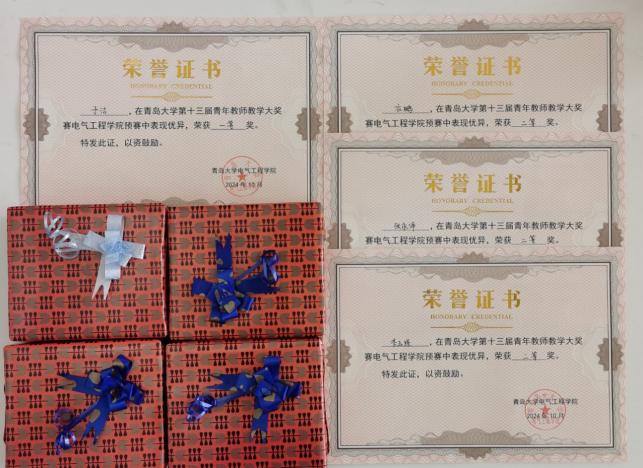 荣誉证书
HONORARY CREDENTIAL
于洁，在青岛大学第十三届青年教师教学大奖
赛电气工程学院预赛中表现优异，荣获 一等 奖。
特发此证，以资鼓励。
青岛大学电气工程学院
2024 年 10 月
荣誉证书
HONORARY CREDENTIAL
，在青岛大学第十三届青年教师教学大奖
赛电气工程学院预赛中表现优异，荣获 二等 奖。
荣誉证书
HONORARY CREDENTIAL
，在青岛大学第十三届青年教师教学大奖
赛电气工程学院预赛中表现优异，荣获 二等 奖。
荣誉证书
HONORARY CREDENTIAL
，在青岛大学第十三届青年教师教学大奖
赛电气工程学院预赛中表现优异，荣获 二等 奖。
特发此证，以资鼓励。
青岛大学电气工程学院
2024 年 10 月